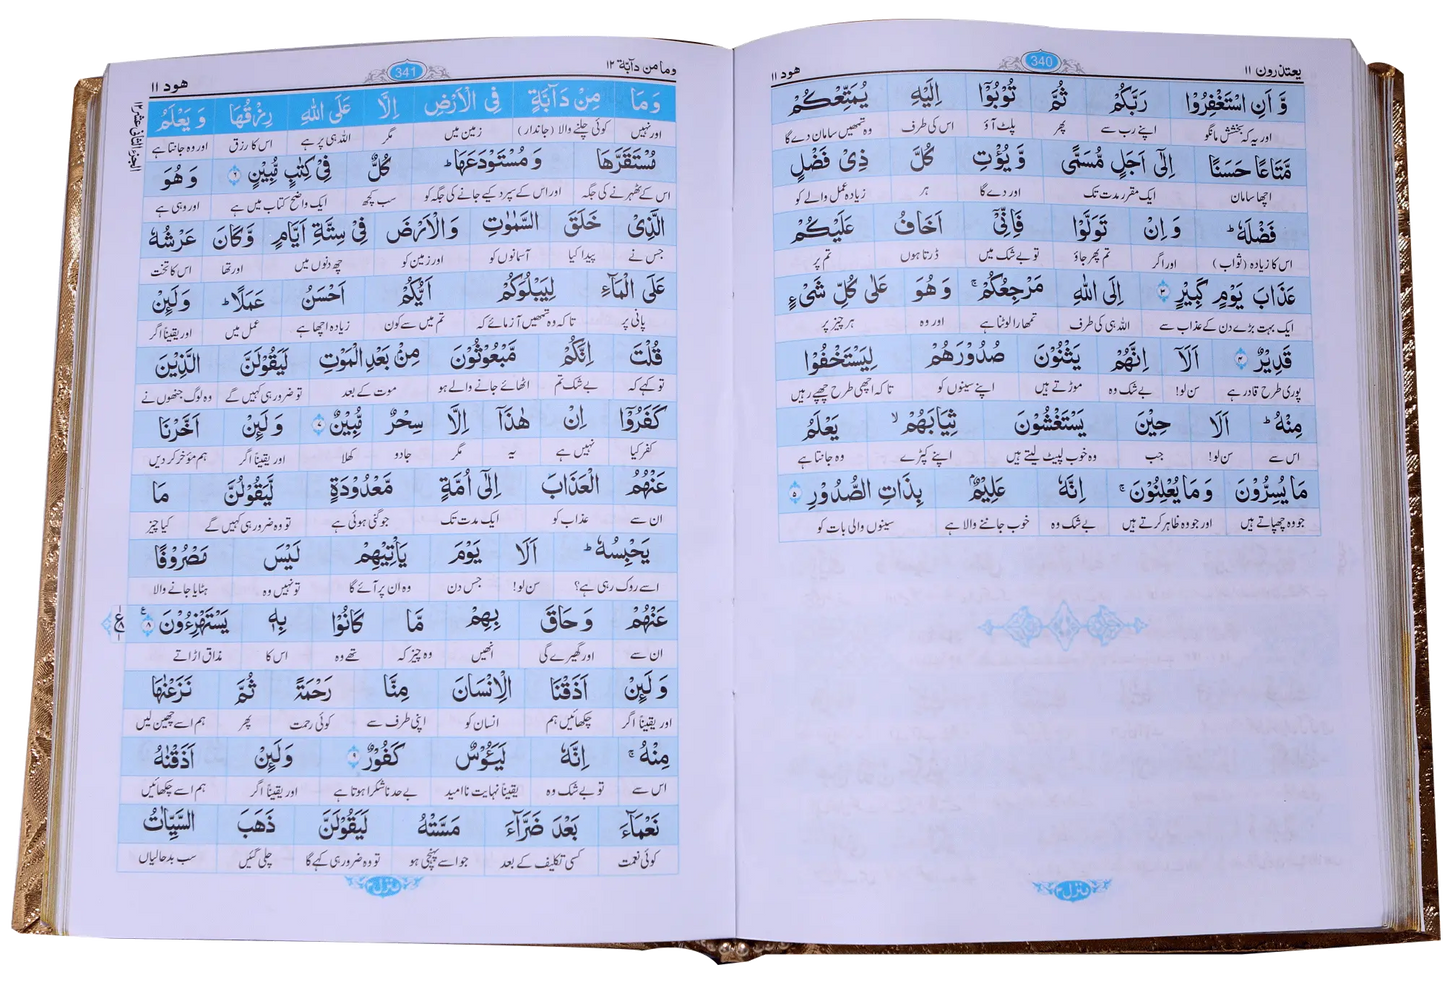 یعتذرون ۱۱
340
ھود ۱۱
وَّ اَنِ اسْتَغْفِرُوْا رَبَّكُمْ ثُمَّ تُوْبُوْۤا اِلَیْهِ یُمَتِّعْكُمْ
اور یہ کہ بخشش مانگو اپنے رب سے پھر پلٹ آؤ اس کی طرف وہ تمھیں سامان دے گا
مَّتَاعًا حَسَنًا اِلٰۤى اَجَلٍ مُّسَمًّى وَّ یُؤْتِ كُلَّ ذِیْ فَضْلٍ
اچھا سامان ایک مقرر مدت تک اور دے گا ہر زیادہ عمل والے کو
فَضْلَهٗ ؕ وَ اِنْ تَوَلَّوْا فَاِنِّیْۤ اَخَافُ عَلَیْكُمْ
اس کا زیادہ (ثواب) اور اگر تم پھر جاؤ تو بے شک میں ڈرتا ہوں تم پر
عَذَابَ یَوْمٍ كَبِیْرٍ ۳ اِلَى اللّٰهِ مَرْجِعُكُمْ ۚ وَ هُوَ عَلٰى كُلِّ شَیْءٍ
ایک بہت بڑے دن کے عذاب سے اللہ ہی کی طرف تمھارا لوٹنا ہے اور وہ ہر چیز پر
قَدِیْرٌ ۴ اَلَاۤ اِنَّهُمْ یَثْنُوْنَ صُدُوْرَهُمْ لِیَسْتَخْفُوْا
پوری طرح قادر ہے سن لو! بے شک وہ موڑتے ہیں اپنے سینوں کو تا کہ اچھی طرح چھپے رہیں
مِنْهُ ؕ اَلَا حِیْنَ یَسْتَغْشُوْنَ ثِیَابَهُمْ ۙ یَعْلَمُ
اس سے سن لو! جب وہ خوب لپیٹ لیتے ہیں اپنے کپڑے وہ جانتا ہے
مَا یُسِرُّوْنَ وَ مَا یُعْلِنُوْنَ ۚ اِنَّهٗ عَلِیْمٌۢ بِذَاتِ الصُّدُوْرِ ۵
جو وہ چھپاتے ہیں اور جو وہ ظاہر کرتے ہیں بے شک وہ خوب جاننے والا ہے سینوں والی بات کو
منزل ۳
وما من دآبة ۱۲
341
ھود ۱۱
وَ مَا مِنْ دَآبَّةٍ فِی الْاَرْضِ اِلَّا عَلَى اللّٰهِ رِزْقُهَا وَ یَعْلَمُ
اور نہیں کوئی چلنے والا (جاندار) زمین میں مگر اللہ ہی پر ہے اس کا رزق اور وہ جانتا ہے
مُسْتَقَرَّهَا وَ مُسْتَوْدَعَهَا ؕ كُلٌّ فِیْ كِتٰبٍ مُّبِیْنٍ ۶ وَ هُوَ
اس کے ٹھہرنے کی جگہ اور اس کے سپرد کیے جانے کی جگہ کو سب کچھ ایک واضح کتاب میں ہے اور وہی ہے
الَّذِیْ خَلَقَ السَّمٰوٰتِ وَ الْاَرْضَ فِیْ سِتَّةِ اَیَّامٍ وَّ كَانَ عَرْشُهٗ
جس نے پیدا کیا آسمانوں کو اور زمین کو چھ دنوں میں اور تھا اس کا تخت
عَلَى الْمَآءِ لِیَبْلُوَكُمْ اَیُّكُمْ اَحْسَنُ عَمَلًا ؕ وَ لَىِٕنْ
پانی پر تا کہ وہ تمھیں آزمائے کہ تم میں سے کون زیادہ اچھا ہے عمل میں اور یقیناً اگر
قُلْتَ اِنَّكُمْ مَّبْعُوْثُوْنَ مِنْۢ بَعْدِ الْمَوْتِ لَیَقُوْلَنَّ الَّذِیْنَ
تو کہے کہ بے شک تم اٹھائے جانے والے ہو موت کے بعد تو ضرور ہی کہیں گے وہ لوگ جنھوں نے
كَفَرُوْۤا اِنْ هٰذَاۤ اِلَّا سِحْرٌ مُّبِیْنٌ ۷ وَ لَىِٕنْ اَخَّرْنَا
کفر کیا نہیں ہے یہ مگر جادو کھلا اور یقیناً اگر ہم مؤخر کر دیں
عَنْهُمُ الْعَذَابَ اِلٰۤى اُمَّةٍ مَّعْدُوْدَةٍ لَّیَقُوْلُنَّ مَا
ان سے عذاب کو ایک مدت تک جو گنی ہوئی ہے تو وہ ضرور ہی کہیں گے کیا چیز
یَحْبِسُهٗ ؕ اَلَا یَوْمَ یَاْتِیْهِمْ لَیْسَ مَصْرُوْفًا
اسے روک رہی ہے؟ سن لو! جس دن وہ ان پر آئے گا تو نہیں وہ ہٹایا جانے والا
عَنْهُمْ وَ حَاقَ بِهِمْ مَّا كَانُوْا بِهٖ یَسْتَهْزِءُوْنَ ۸
ان سے اور گھیرے گی انھیں وہ چیز کہ تھے وہ اس کا مذاق اڑاتے
وَ لَىِٕنْ اَذَقْنَا الْاِنْسَانَ مِنَّا رَحْمَةً ثُمَّ نَزَعْنٰهَا
اور یقیناً اگر چکھائیں ہم انسان کو اپنی طرف سے کوئی رحمت پھر ہم اسے چھین لیں
مِنْهُ ۚ اِنَّهٗ لَیَـُٔوْسٌ كَفُوْرٌ ۹ وَ لَىِٕنْ اَذَقْنٰهُ
اس سے تو بے شک وہ یقیناً نہایت ناامید بے حد ناشکرا ہوتا ہے اور یقیناً اگر ہم اسے چکھائیں
نَعْمَآءَ بَعْدَ ضَرَّآءَ مَسَّتْهُ لَیَقُوْلَنَّ ذَهَبَ السَّیِّاٰتُ
کوئی نعمت کسی تکلیف کے بعد جو اسے پہنچی ہو تو وہ ضرور ہی کہے گا چلی گئیں سب بدحالیاں
منزل ۳
الجزء الثانی عشر ۱۲
ع